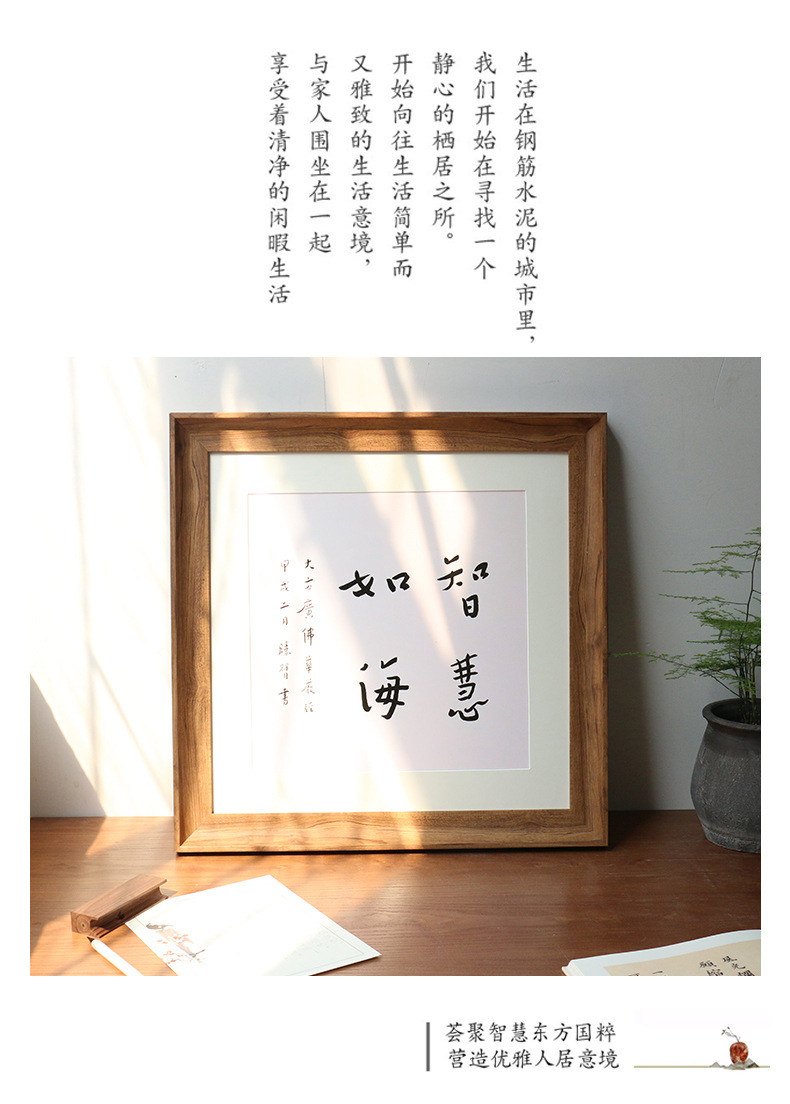 生活在钢筋水泥的城市里，
我们开始在寻找一个
静心的栖居之所。
开始向往生活简单而
又雅致的生活意境，
与家人围坐在一起
享受着清净的闲暇生活
智慧
如海
大方廣佛華嚴經
甲戌二月陈智書
荟聚智慧东方国粹
营造优雅人居意境